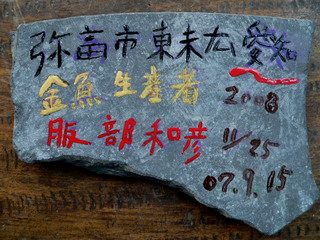 弥富市東末広 愛知
金魚 生産者
2008
服部和彦
11/25
07.9.15